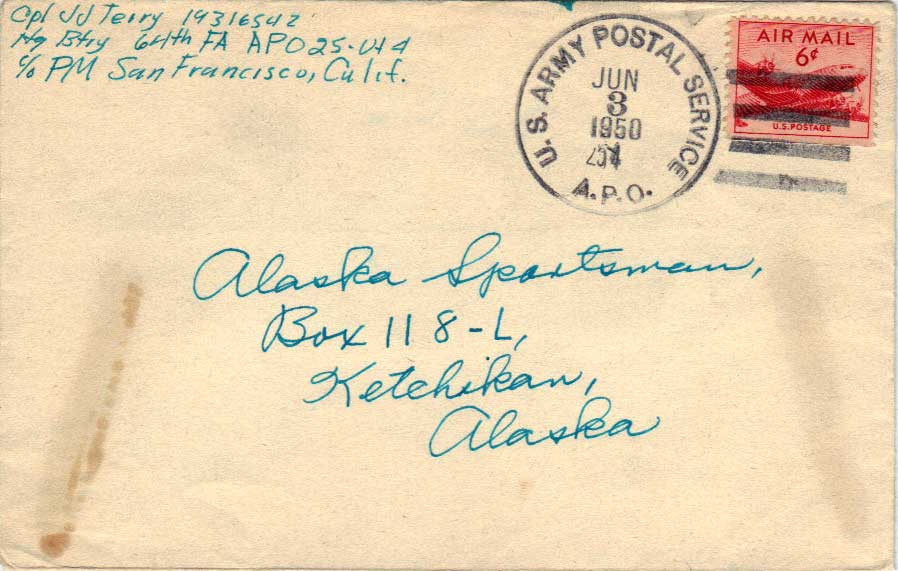 Cpl JJ Terry 19316542
Hq Btry 64th FA APO 25-U#4
c/o PM San Francisco, Calif.
U.S. ARMY POSTAL SERVICE
JUN
3
1950
A.P.O.
AIR MAIL
6¢
U.S. POSTAGE
Alaska Sportsman,
Box 118-L,
Ketchikan,
Alaska